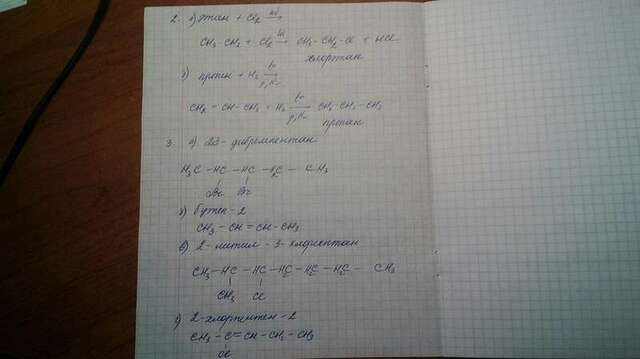 2. а) этан + Cl2 hν→
CH3-CH3 + Cl2 hν→ CH3-CH2-Cl + HCl
хлорэтан
б) пропен + H2 t°→
CH2 = CH-CH3 + H2 t°→ CH3-CH2-CH3
пропан
3. а) 2,3-дибромпентан
H3C - HC - HC - H2C - CH3
Br Br
б) бутен-2
CH3 - CH = CH - CH3
в) 2-метил-3-хлоргептан
CH3 - HC - HC - H2C - H2C - H2C - CH3
CH3 Cl
г) 2-хлорпентен-2
CH3 - C = CH - CH2 - CH3
Cl